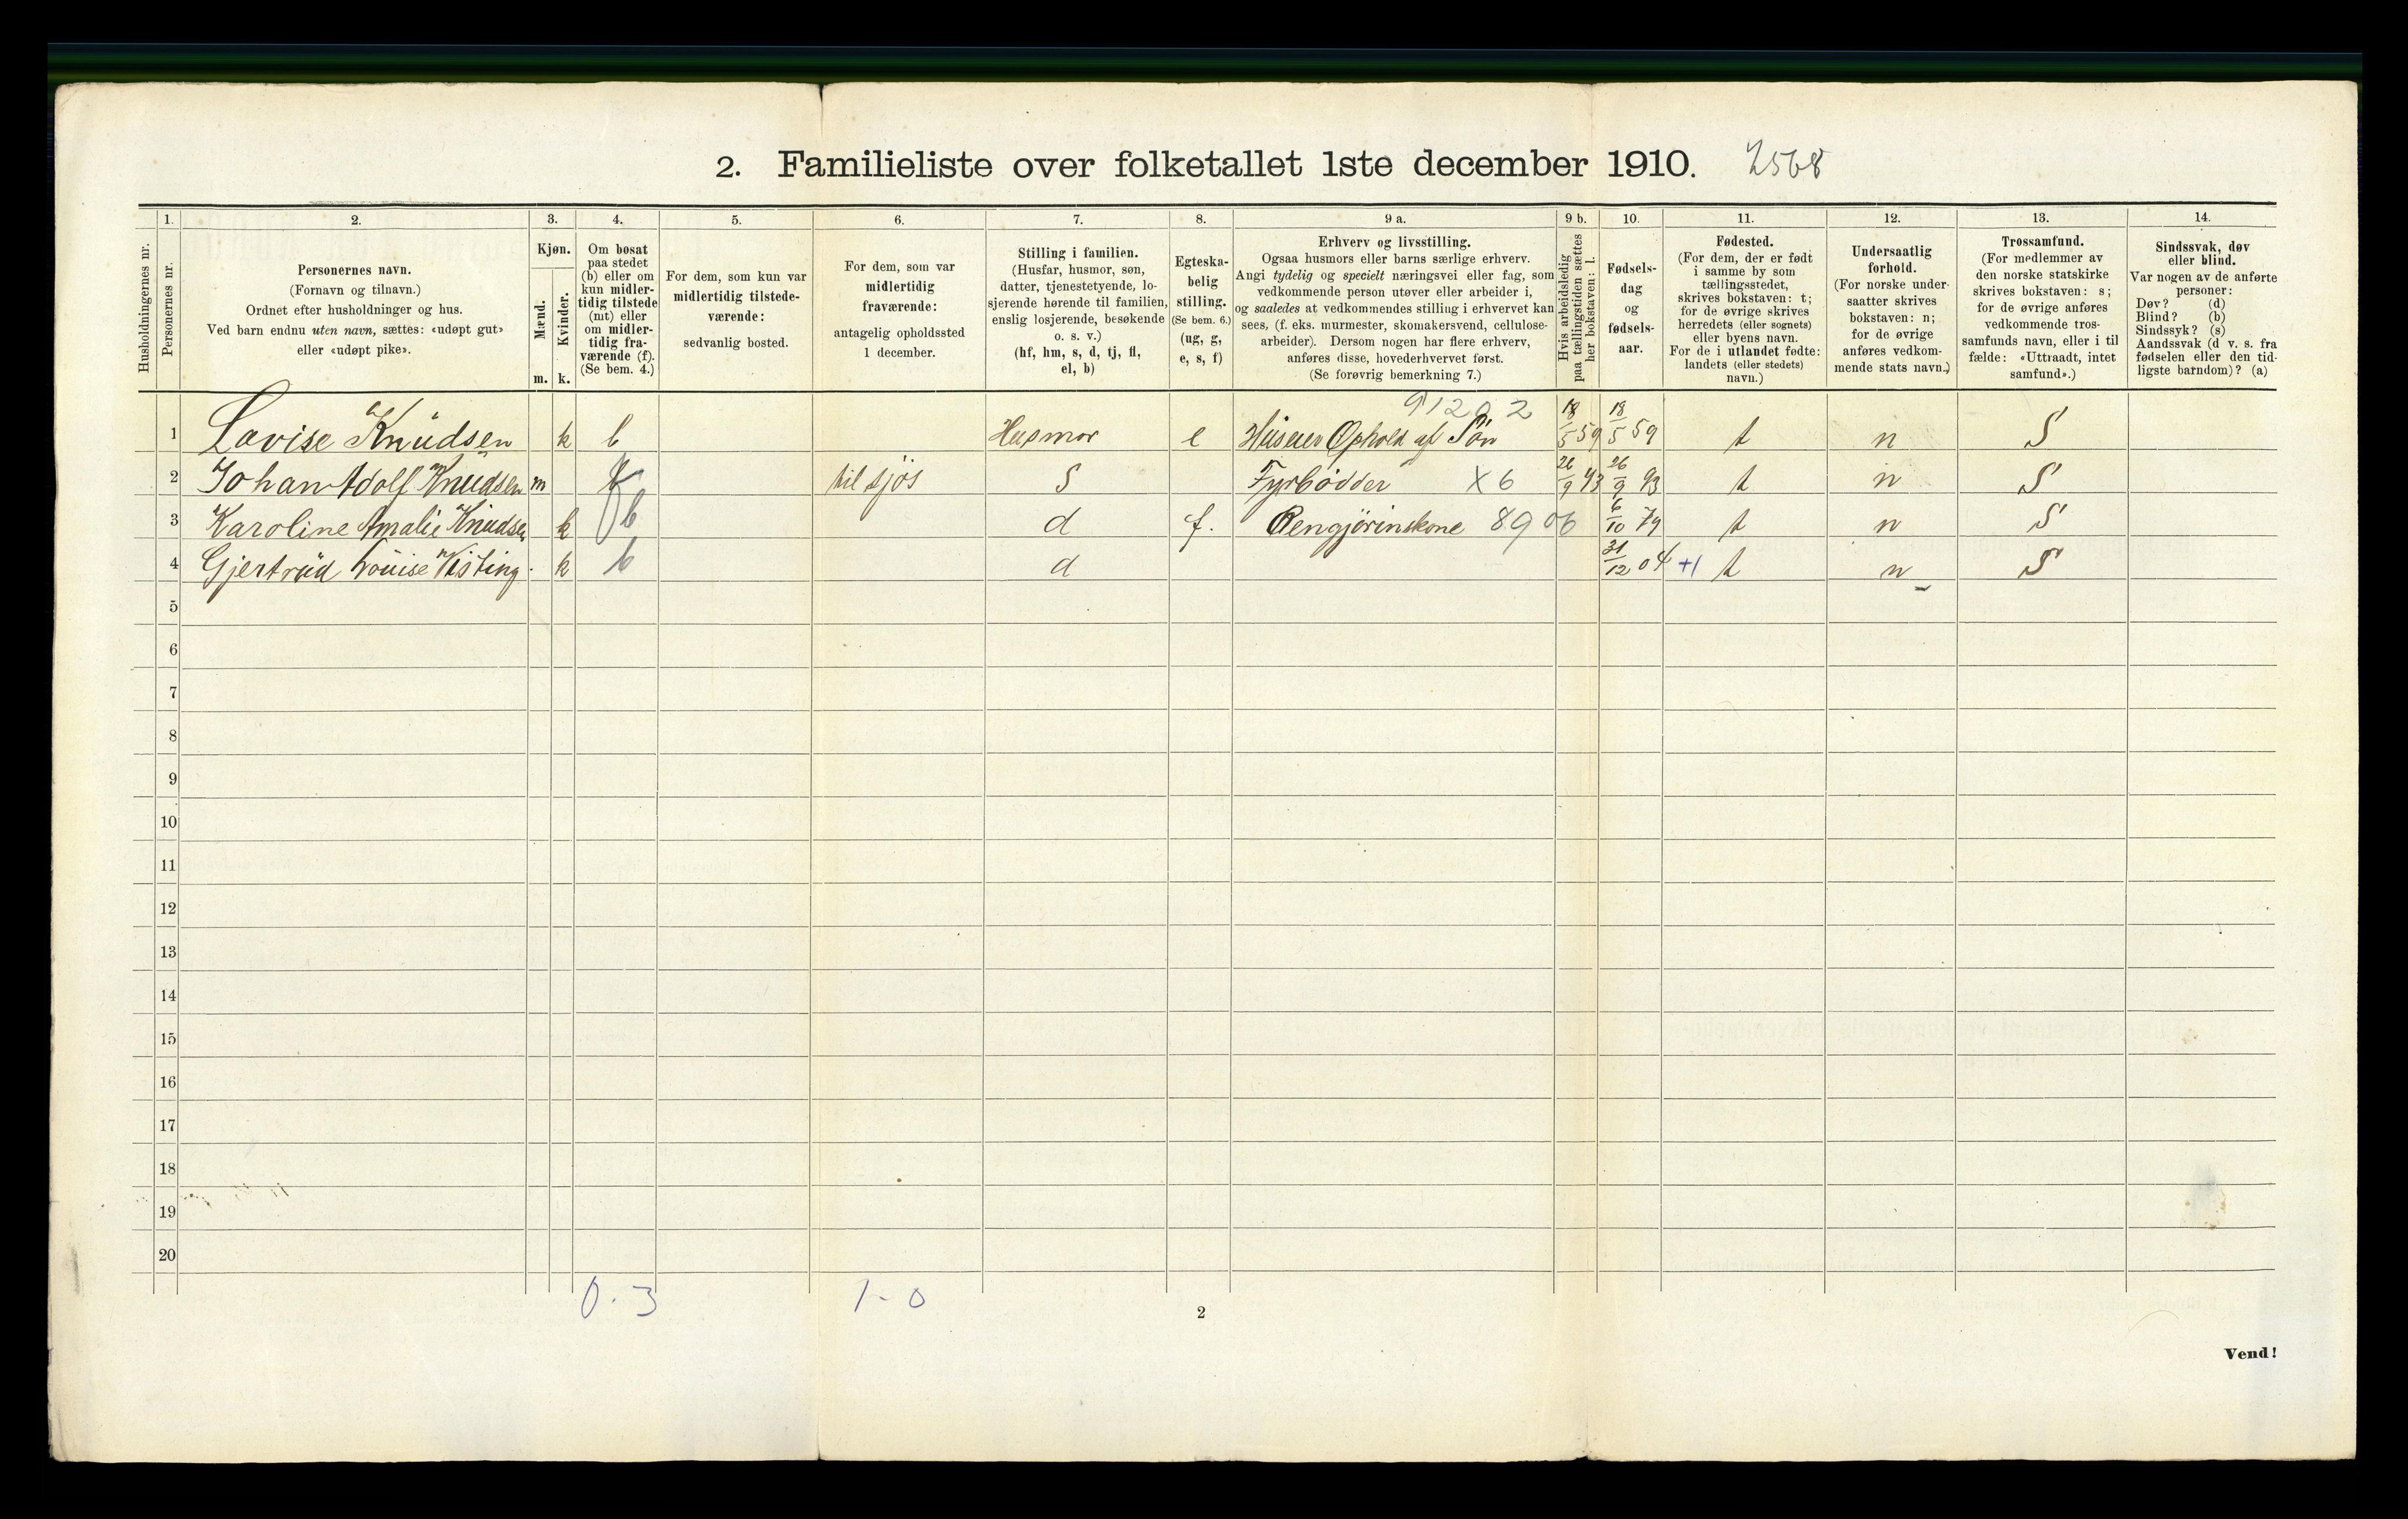 2. Familieliste over folketallet 1ste december 1910. 2568
1. 2. 3. 4. 5. 6. 7. 8. 9 a. 9 b. 10. 11. 12. 13. 14.
Husholdningernes nr.
Personernes nr.
Personernes navn.
(Fornavn og tilnavn.)
Ordnet efter husholdninger og hus.
Ved barn endnu uten navn, sættes: «udøpt gut»
eller «udøpt pike».
Kjøn.
Mænd.
Kvinder.
m. k.
Om bosat
paa stedet
(b) eller om
kun midler-
tidig tilstede
(mt) eller
om midler-
tidig fra-
værende (f).
(Se bem. 4.)
For dem, som kun var
midlertidig tilstede-
værende:
sedvanlig bosted.
For dem, som var
midlertidig
fraværende:
antagelig opholdssted
1 december.
Stilling i familien.
(Husfar, husmor, søn,
datter, tjenestetyende, lo-
sjerende hørende til familien,
enslig losjerende, besøkende
o. s. v.)
(hf, hm, s, d, tj, fl,
el, b)
Egteska-
belig
stilling.
(Se bem. 6.)
(ug, g,
e, s, f)
Erhverv og livsstilling.
Ogsaa husmors eller barns særlige erhverv.
Angi tydelig og specielt næringsvei eller fag, som
vedkommende person utøver eller arbeider i,
og saaledes at vedkommendes stilling i erhvervet kan
sees, (f. eks. murmester, skomakersvend, cellulose-
arbeider). Dersom nogen har flere erhverv,
anføres disse, hovederhvervet først.
(Se forøvrig bemerkning 7.)
Hvis arbeidsledig
paa tællingstiden sættes
her bokstaven: l.
Fødsels-
dag
og
fødsels-
aar.
Fødested.
(For dem, der er født
i samme by som
tællingsstedet,
skrives bokstaven: t;
for de øvrige skrives
herredets (eller sognets)
eller byens navn.
For de i utlandet fødte:
landets (eller stedets)
navn.)
Undersaatlig
forhold.
(For norske under-
saatter skrives
bokstaven: n;
for de øvrige
anføres vedkom-
mende stats navn.)
Trossamfund.
(For medlemmer av
den norske statskirke
skrives bokstaven: s;
for de øvrige anføres
vedkommende tros-
samfunds navn, eller i til
fælde: «Uttraadt, intet
samfund».)
Sindssvak, døv
eller blind.
Var nogen av de anførte
personer:
Døv? (d)
Blind? (b)
Sindssyk? (s)
Aandssvak (d v. s. fra
fødselen eller den tid-
ligste barndom)? (a)
91202
1 Lovise Knudsen k b Husmor e Ophold af Søn 18/5 59 18/5 59 t n S
2 Johan Adolf Knudsen m f til sjøs S Fyrbødder X6 26/9 93 26/9 93 t n S
3 Karoline Amalie Knudsen k b d f. Rengjörinskone 8906 6/10 79 t n S
4 Gjertrud Louise Wisting k b d 31/12 04 +1 t n S
5
6
7
8
9
10
11
12
13
14
15
16
17
18
19
20
0.3 1-0
2
Vend!